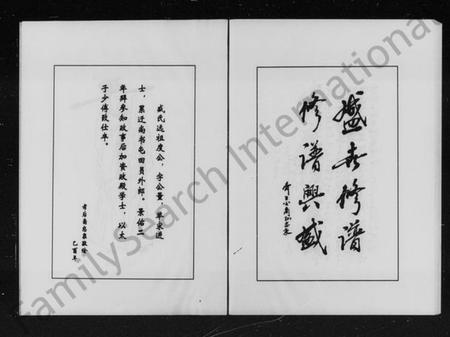 盛世修譜
修譜興盛
盛氏远祖度公，字公量，举求进
士，累迁尚书屯田员外郎。景佑二
年拜参知政事后加资政殿学士，以太
子少傅致仕卒。
乙酉年
FamilySearch International